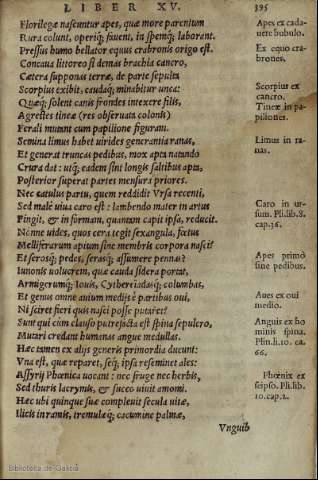 LIBER XV. 395
Florilegæ nascuntur apes, quæ more parentum
Rura colunt, operiq; fauent, in spemq; laborant.
Pressus humo bellator equus crabronis origo est.
Concaua littoreo si demas brachia cancro,
Cætera supponas terræ, de parte sepulta
Scorpius exibit, caudaq; minabitur unca:
Quæq; solent canis frondes intexere filis,
Agrestes tineæ (res obseruata colonis)
Ferali mutant cum papilione figuram.
Semina limus habet uirides generantia ranas,
Et generat truncas pedibus, mox apta natando
Crura dat: utq; eadem sint longis saltibus apta,
Posterior superat partes mensura priores.
Nec catulus partu, quem reddidit Vrsa recenti,
Sed malè uiua caro est: lambendo mater in artus
Fingit, & in formam, quantam capit ipsa, reducit.
Nonne uides, quos cera tegit sexangula, fœtus
Melliferarum apium sine membris corpora nasci?
Et serosq; pedes, serasq; assumere pennas?
Iunonis uolucrem, quæ cauda sidera portat,
Armigerumq; Iouis, Cythereiadasq; columbas,
Et genus omne auium medijs è partibus oui,
Ni sciret fieri quis nasci posse putaret?
Sunt qui cùm clauso putrefacta est spina sepulcro,
Mutari credant humanas angue medullas.
Hæc tamen ex alijs generis primordia ducunt:
Vna est, quæ reparet, seq; ipsa reseminet ales:
Assyrij Phœnica uocant: nec fruge nec herbis,
Sed thuris lacrymis, & succo uiuit amomi.
Hæc ubi quinque suæ compleuit secula uitæ,
Ilicis in ramis, tremulæq; cacumine palmæ,
Vnguib
Apes ex cada-
uere bubulo.
Ex equo cra-
brones.
Scorpius ex
cancro.
Tineæ in pa-
piliones.
Limus in ra-
nas.
Caro in ur-
sum. Pli.lib.8.
cap.36.
Apes primò
sine pedibus.
Aues ex oui
medio.
Anguis ex ho
minis spina.
Plin.li.10. ca.
66.
Phœnix ex
seipso. Pli.lib.
10.cap.2.
Biblioteca de Galicia